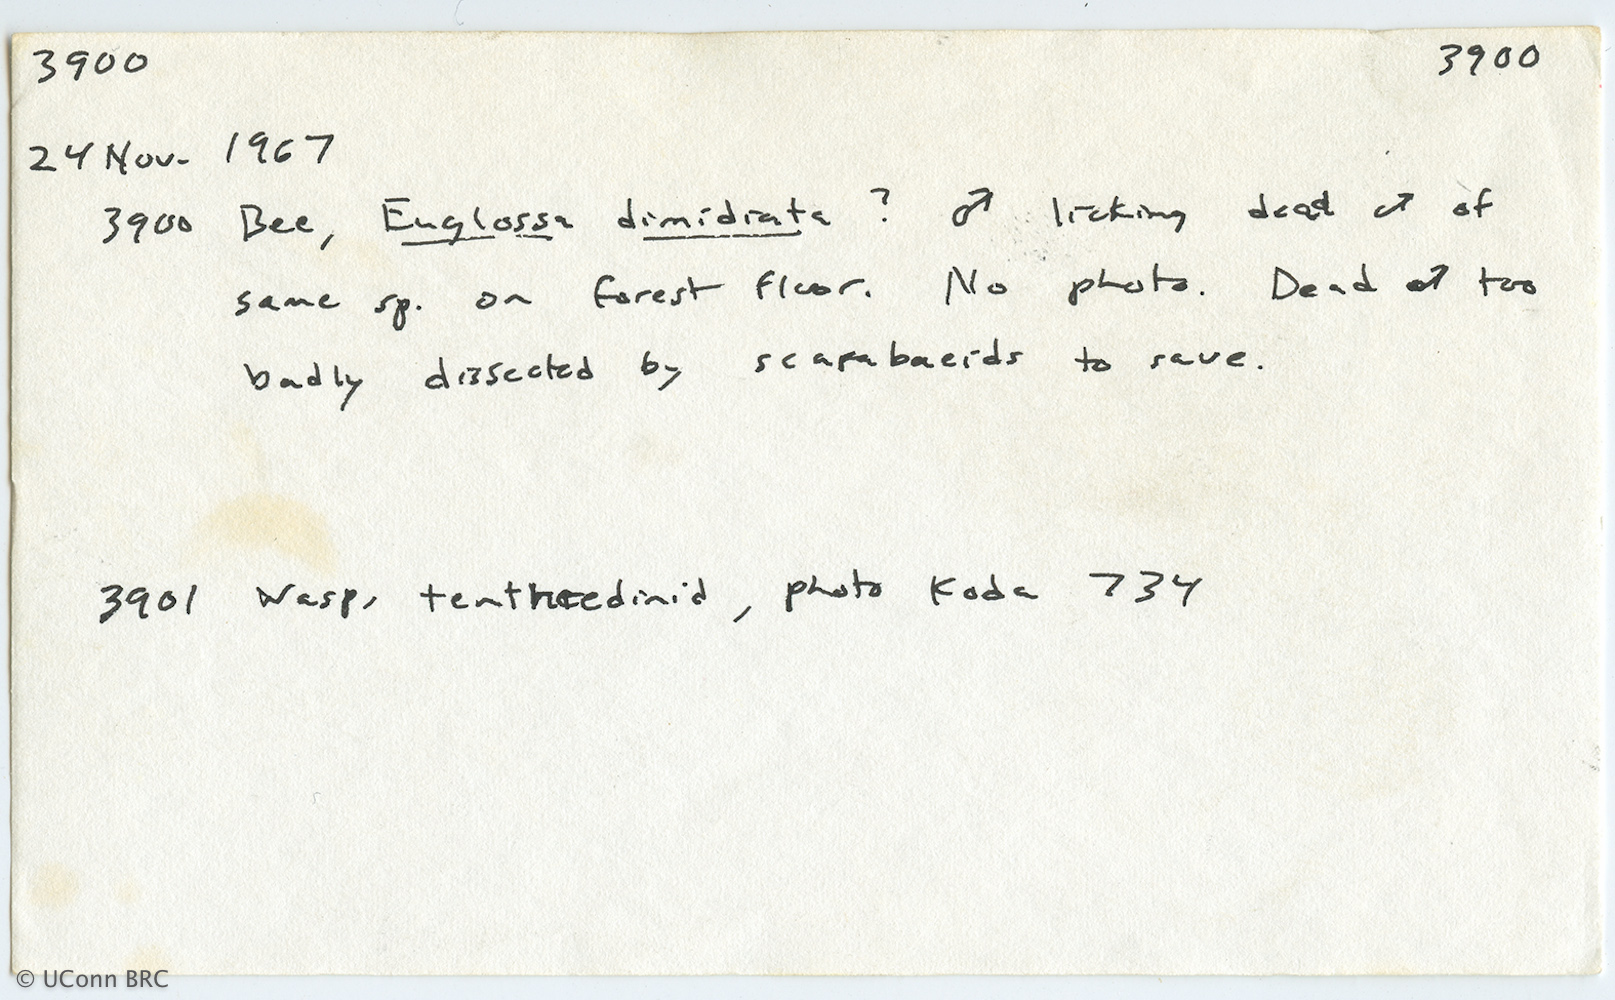 3900 3900
24 Nov. 1967
3900 Bee, Euglossa dimidiata ? ♂ licking dead ♂ of
same sp. on forest floor. No photo. Dead ♂ too
badly dissected by scarabaeids to save.
3901 Wasp, tenthredinid, photo Koda 734
© UConn BRC